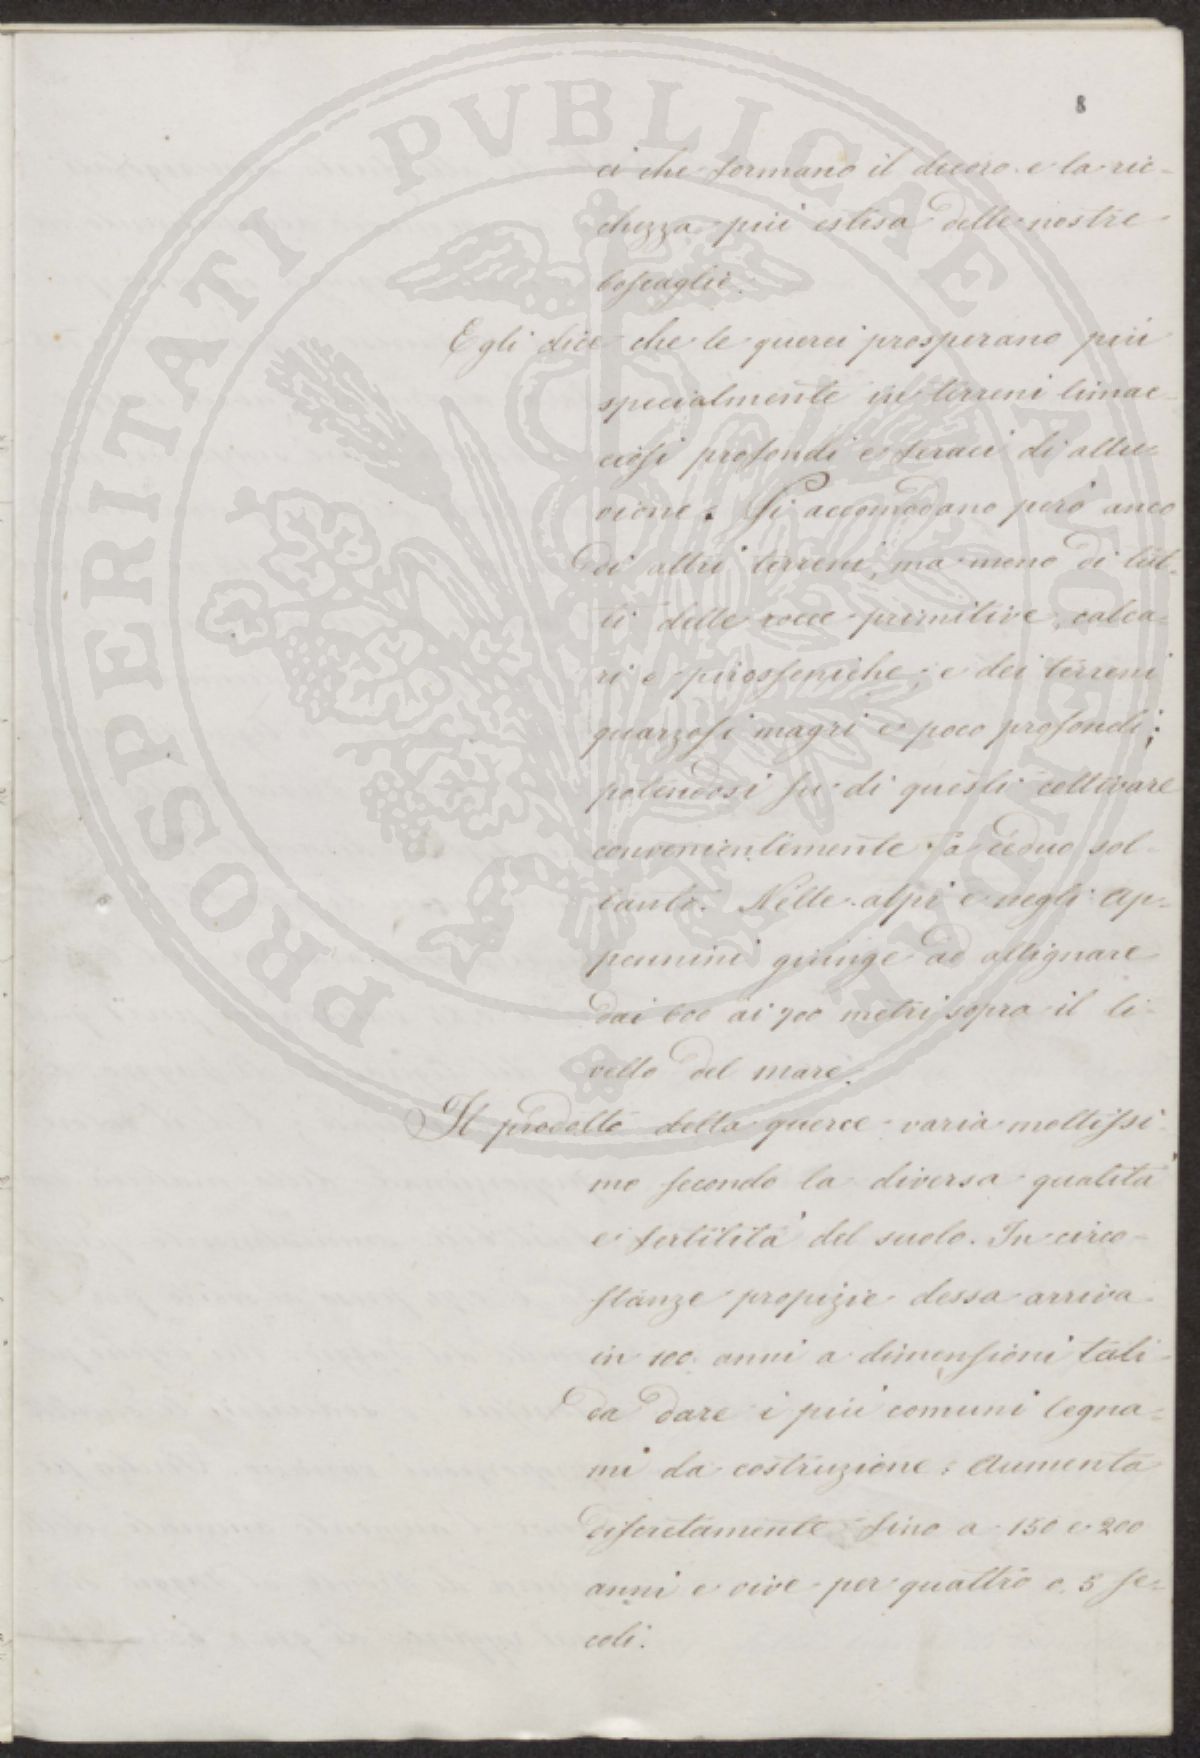 8
ci che formano il decoro e la ric-
chezza più estesa delle nostre
boscaglie.
Egli dice che le querci prosperano più
specialmente in terreni limac-
ciosi profondi e feraci di allu-
vione. Si accomodano però anco
di altri terreni, ma meno di tut-
ti delle rocce primitive, calca-
ri e pirosseniche; e dei terreni
quarzosi magri e poco profondi;
potendosi su di questi coltivare
convenientemente a ceduo sol-
tanto. Nelle alpi e negli Ap-
pennini giunge ad allignare
dai 600 ai 900 metri sopra il li-
vello del mare.
Il prodotto della querce varia moltissi-
mo secondo la diversa qualità
e fertilità del suolo. In circo-
stanze propizie dessa arriva
in 100 anni a dimensioni tali
da dare i più comuni legna-
mi da costruzione: Aumenta
discretamente fino a 150 e 200
anni e vive per quattro o 5 se-
coli.
PROSPERITATI PVBLICAE AVGENDAE